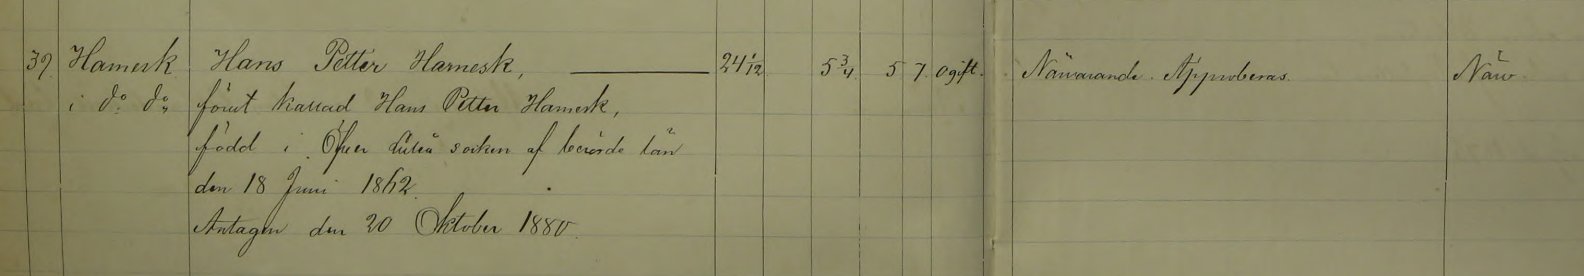 39. Harnesk Hans Petter Harnesk, 24 1/12 5 3/4 5 7 ogift. Närvarande. Approberas. Närv
i do do förut kallad Hans Petter Harnesk,
född i Öfver Luleå socken af berörde län
den 18 Juni 1862.
Antagen den 20 Oktober 1880.